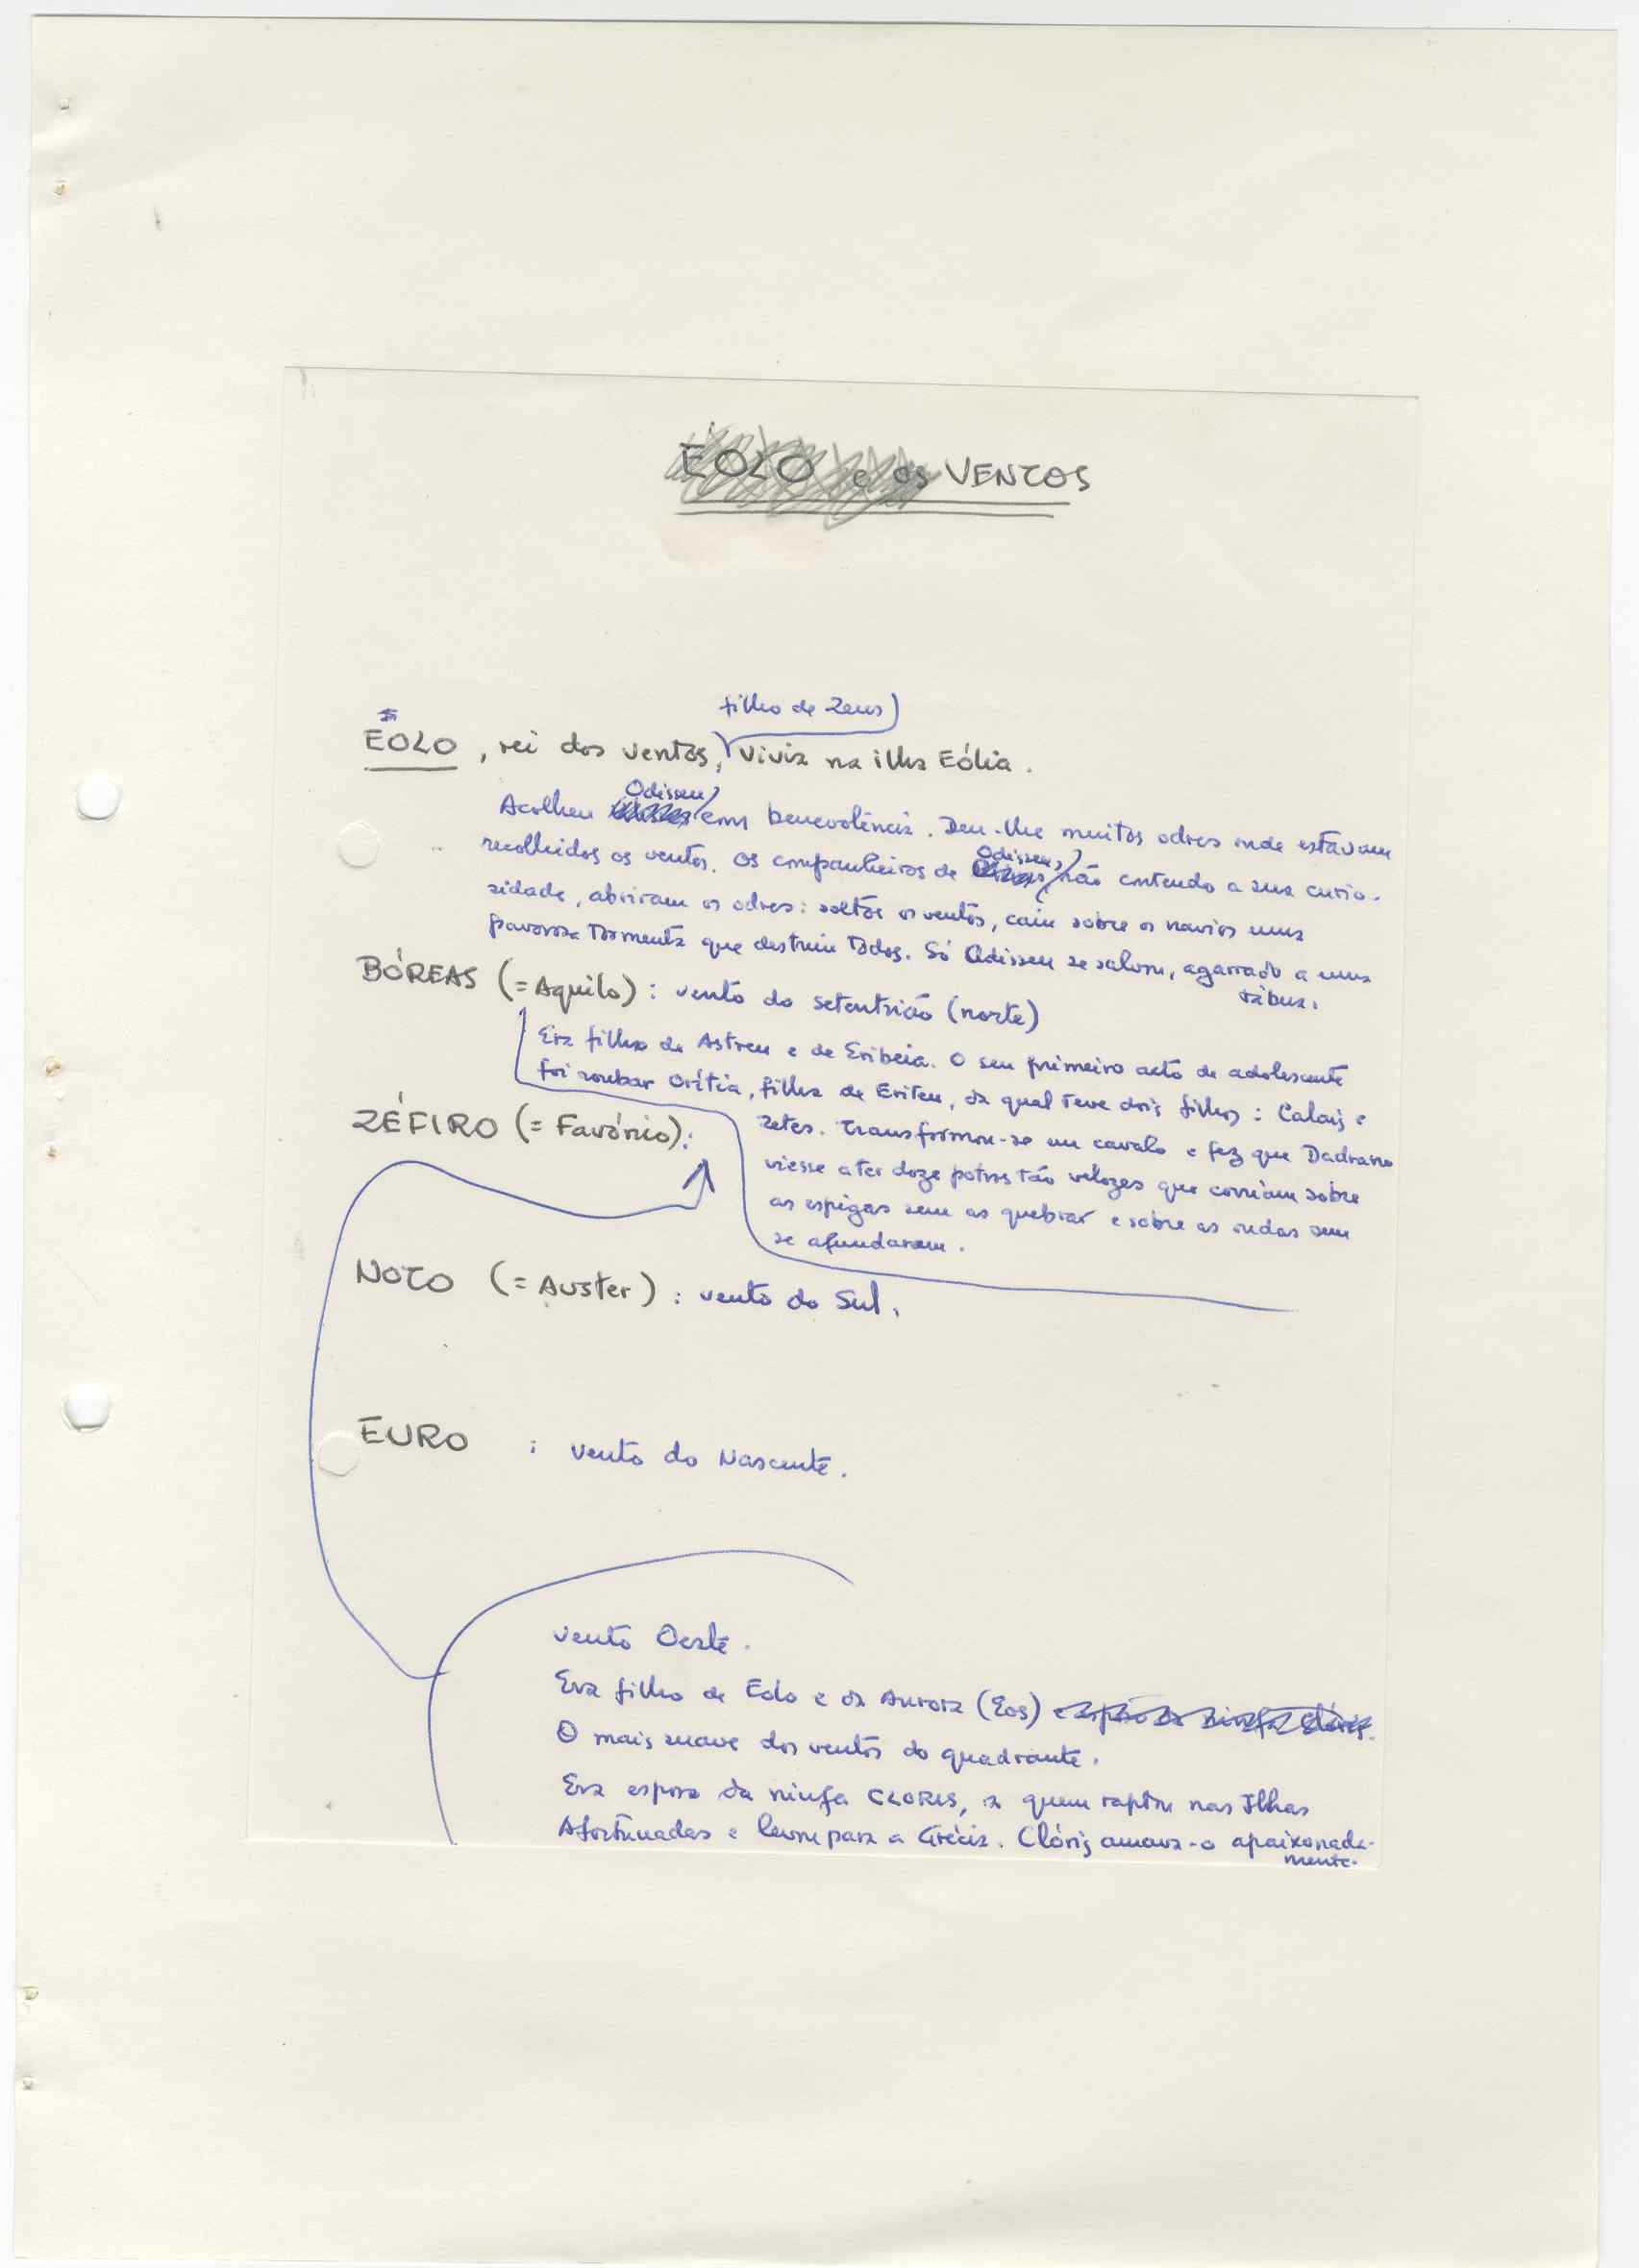 ÉOLO e os VENTOS
filho de Zeus
ÉOLO, rei dos ventos, vivia na ilha Eólia.
Odisseu
Acolheu com benevolência. Deu-lhe muitos odres onde estavam
Odisseu,
recolhidos os ventos. Os companheiros de não contendo a sua curio-
sidade, abriram os odres: soltos os ventos, caiu sobre os navios uma
pavorosa tormenta que destruiu todos. Só Odisseu se salvou, agarrado a uma
tábua.
BÓREAS (= Aquilo): vento do setentrião (norte)
Era filho de Astreu e de Eribeia. O seu primeiro acto de adolescente
foi roubar Orítia, filha de Eriteu, da qual teve dois filhos: Calais e
Zetes. Transformou-se em cavalo e fez que Dadrano
viesse a ter doze potros tão velozes que corriam sobre
as espigas sem as quebrar e sobre as ondas sem
se afundarem.
ZÉFIRO (= Favónio):
NOTO (= Auster): vento do Sul.
EURO : vento do Nascente.
vento Oeste.
Era filho de Eolo e da Aurora (Eos) e esposo da ninfa Clóris.
O mais suave dos ventos do quadrante.
Era esposo da ninfa CLORIS, a quem raptou nas Ilhas
Afortunadas e levou para a Grécia. Clóris amava-o apaixonada-
mente.